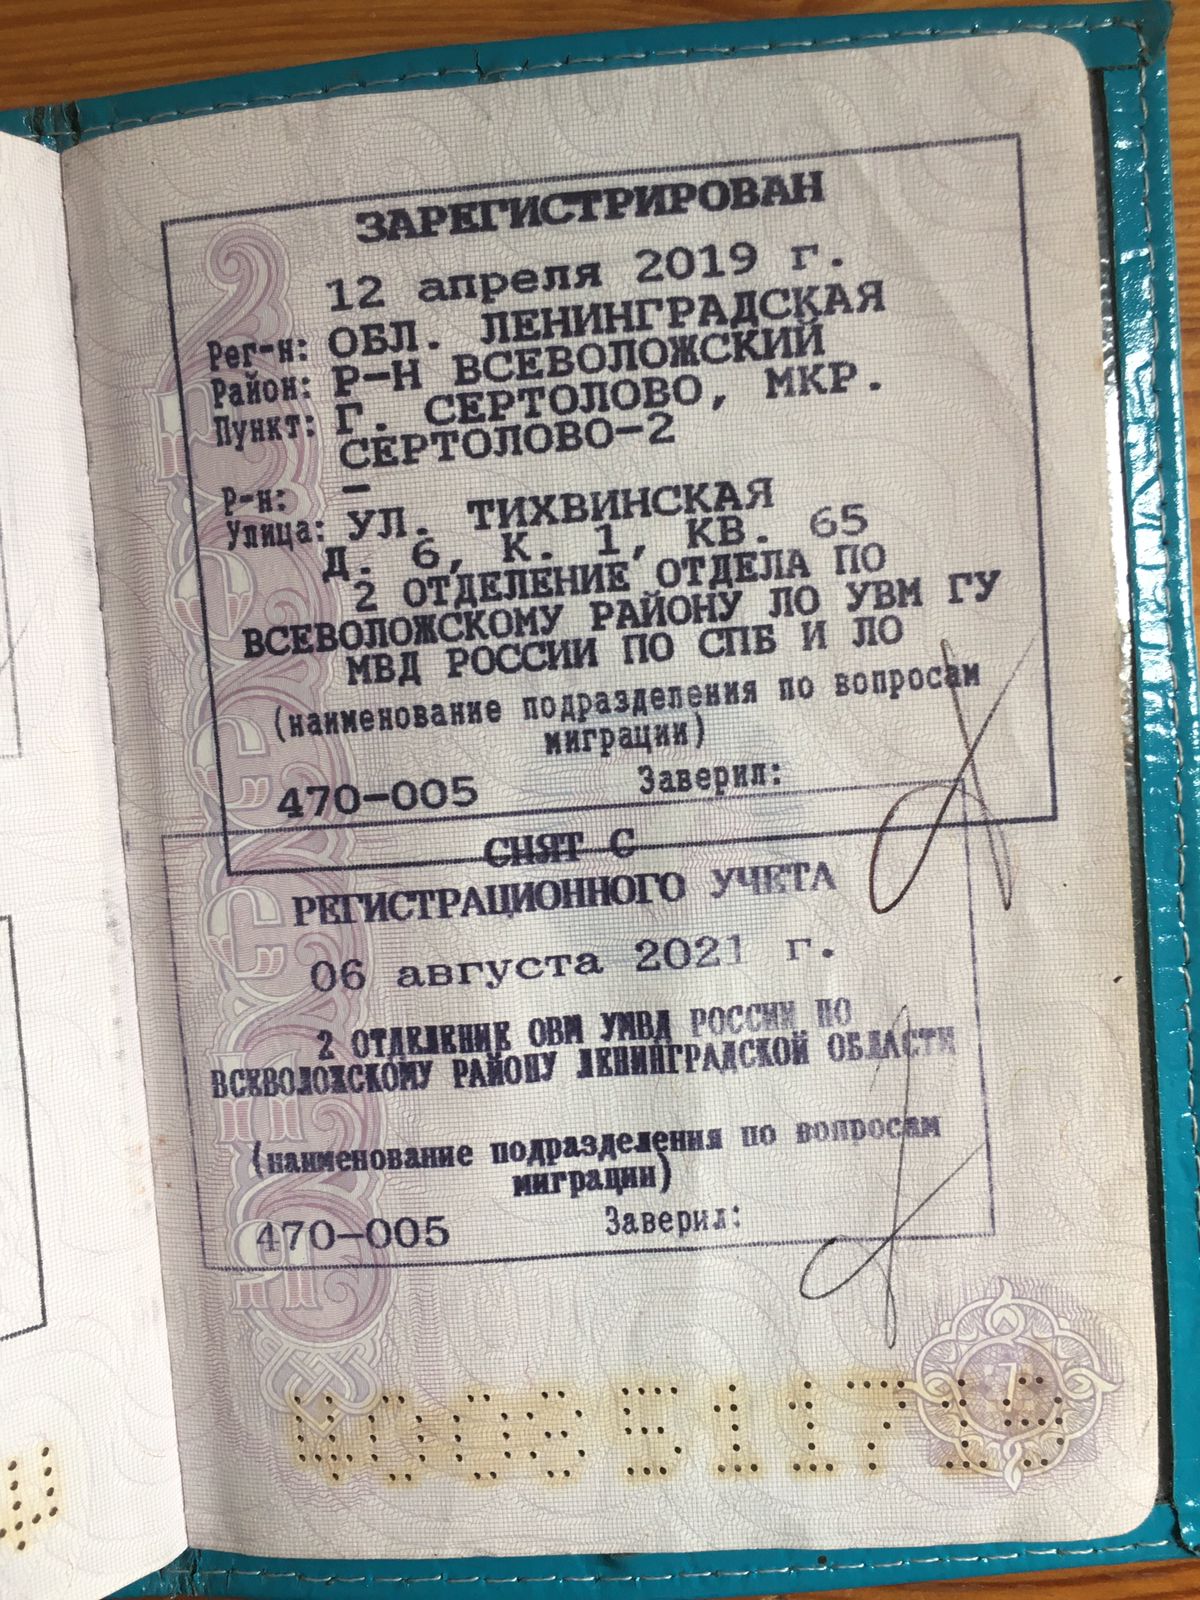 ЗАРЕГИСТРИРОВАН
12 апреля 2019 г.
Рег-н: ОБЛ. ЛЕНИНГРАДСКАЯ
Район: Р-Н ВСЕВОЛОЖСКИЙ
Пункт: Г. СЕРТОЛОВО, МКР.
СЕРТОЛОВО-2
Р-н: –
Улица: УЛ. ТИХВИНСКАЯ
Д. 6, К. 1, КВ. 65
2 ОТДЕЛЕНИЕ ОТДЕЛА ПО
ВСЕВОЛОЖСКОМУ РАЙОНУ ЛО УВМ ГУ
МВД РОССИИ ПО СПБ И ЛО
(наименование подразделения по вопросам
миграции)
470-005 Заверил:
СНЯТ С
РЕГИСТРАЦИОННОГО УЧЕТА
06 августа 2021 г.
2 ОТДЕЛЕНИЕ ОВМ УМВД РОССИИ ПО
ВСЕВОЛОЖСКОМУ РАЙОНУ ЛЕНИНГРАДСКОЙ ОБЛАСТИ
(наименование подразделения по вопросам
миграции)
470-005 Заверил:
7